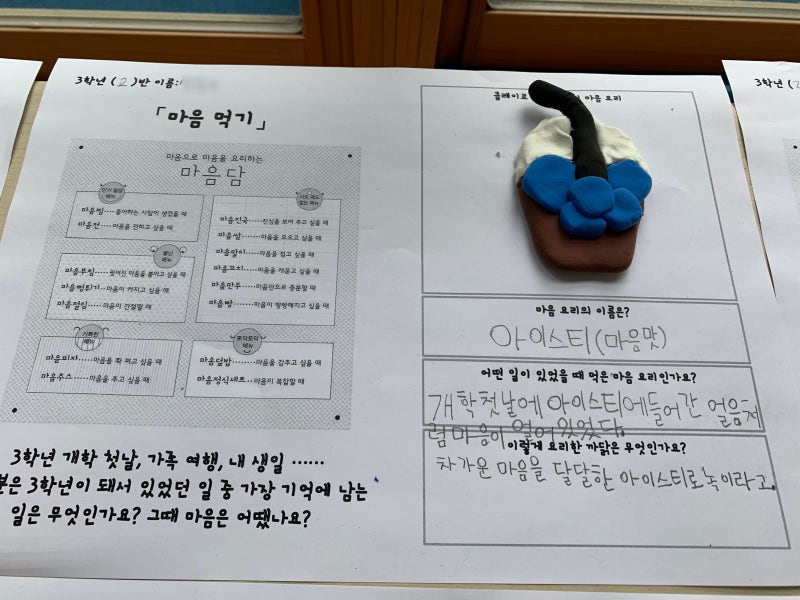 3학년 ( 2 )반 이름:
「마음 먹기」
마음으로 마음을 요리하는
마음담
인기 절정
메뉴
마음찜···· 좋아하는 사람이 생겼을 때
마음전······마음을 전하고 싶을 때
별난
메뉴
마음부침·····찢어진 마음을 붙이고 싶을 때
마음뻥튀기···마음이 커지고 싶을 때
마음절임·····마음이 간절할 때
가족판
메뉴
마음피자·····마음을 쫙 펴고 싶을 때
마음주스·····마음을 주고 싶을 때
마음진국·····진심을 보여 주고 싶을 때
마음쌈·······마음을 모으고 싶을 때
마음말이·····마음을 접고 싶을 때
마음꼬치·····마음을 채우고 싶을 때
마음만두·····마음만으로 충분할 때
마음빵·······마음이 빵빵해지고 싶을 때
토닥토닥
메뉴
마음덮밥········마음을 감추고 싶을 때
마음정식세트··마음이 복잡할 때
3학년 개학 첫날, 가족 여행, 내 생일 ······
분은 3학년이 돼서 있었던 일 중 가장 기억에 남는
일은 무엇인가요? 그때 마음은 어땠나요?
클레이로 마음 요리
마음 요리의 이름은?
아이스티(마음맛)
어떤 일이 있었을 때 먹은 마음 요리인가요?
개학첫날에 아이스티에들어간 얼음처
럼 마음이 얼어있었다.
이렇게 요리한 까닭은 무엇인가요?
차가운 마음을 달달한 아이스티로 녹이라고.
3학년 (2